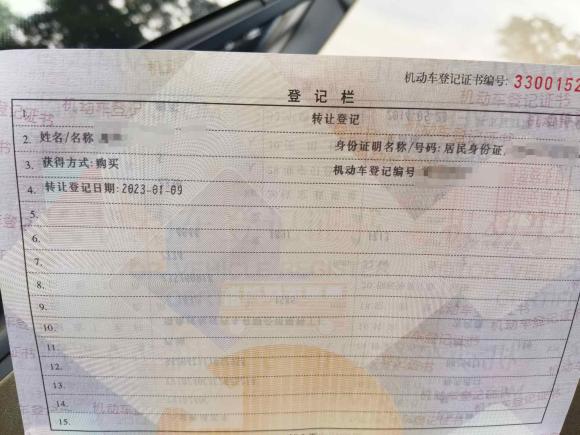 机动车登记证书编号: 3300152
登记栏
1. 转让登记
2. 姓名/名称
身份证明名称/号码: 居民身份证,
3. 获得方式:购买
机动车登记编号
4. 转让登记日期:2023-01-09
5.
6.
7.
8.
9.
10.
11.
12.
13.
14.
15.